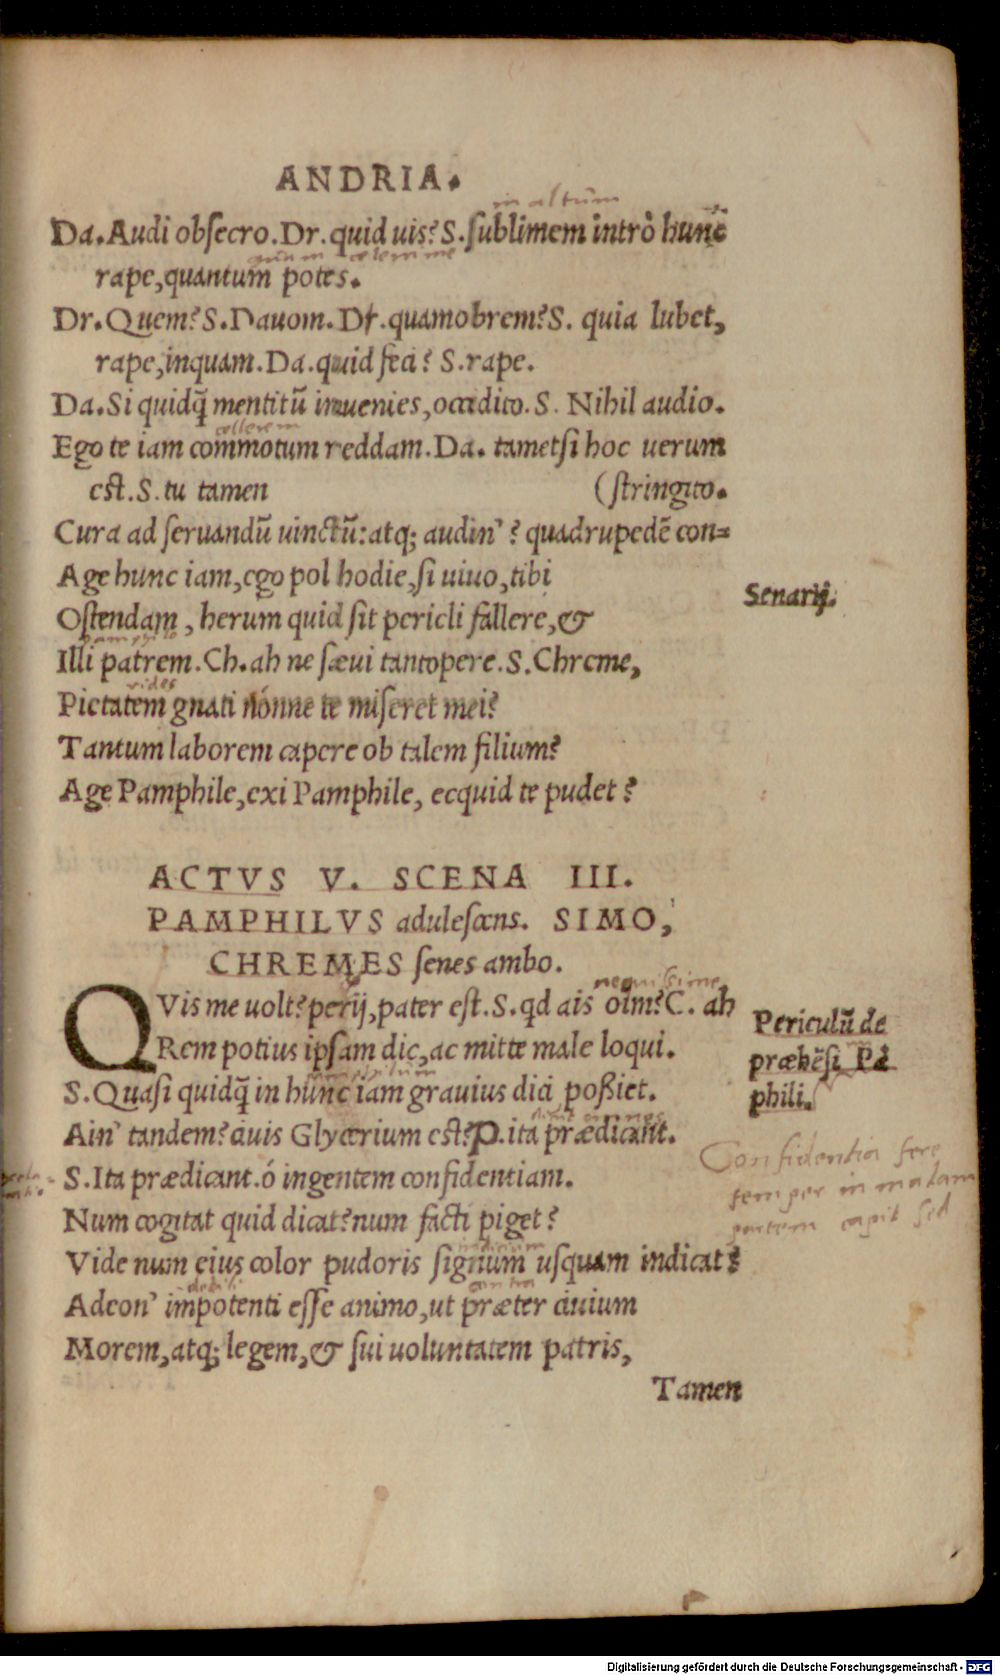 ANDRIA.
in altum
Da. Audi obsecro. Dr. quid uis? S. sublimem intrò hunc
quam celerrime
rape, quantum potes.
Dr. Quem? S. Dauom. Dr. quamobrem? S. quia lubet,
rape, inquam. Da. quid feci? S. rape.
Da. Si quidq̃ mentitũ inuenies, occidito. S. Nihil audio.
Ego te iam commotum reddam. Da. tametsi hoc uerum
est. S. tu tamen (stringito.
Cura ad seruandũ uinctũ: atq; audin'? quadrupedẽ con=
Age hunc iam, ego pol hodie, si uiuo, tibi
Senarij.
Ostendam, herum quid sit pericli fallere, &
pamphilo
Illi patrem. Ch. ah ne sæui tantopere. S. Chreme,
vides
Pietatem gnati nónne te miseret mei?
Tantum laborem capere ob talem filium?
Age Pamphile, exi Pamphile, ecquid te pudet?
ACTVS V. SCENA III.
PAMPHILVS adulescens. SIMO,
CHREMES senes ambo.
nequissime
QVis me uolt? perij, pater est. S. qd ais oĩm? C. ah
Rem potius ipsam dic, ac mitte male loqui.
Periculũ de
præhẽsi Pã
phili.
pamphilum
S. Quasi quidq̃ in hunc iam grauius dici poßiet.
Ain' tandem? ciuis Glycerium est? P. ita prædicant.
S. Ita prædicant. ó ingentem confidentiam.
Confidentia fere
semper in malam
partem capit sed
Num cogitat quid dicat? num facti piget?
indicium
Vide num eius color pudoris signum usquam indicat?
debili contra
Adeon' impotenti esse animo, ut præter ciuium
Morem, atq; legem, & sui uoluntatem patris,
Tamen
Digitalisierung gefördert durch die Deutsche Forschungsgemeinschaft - DFG